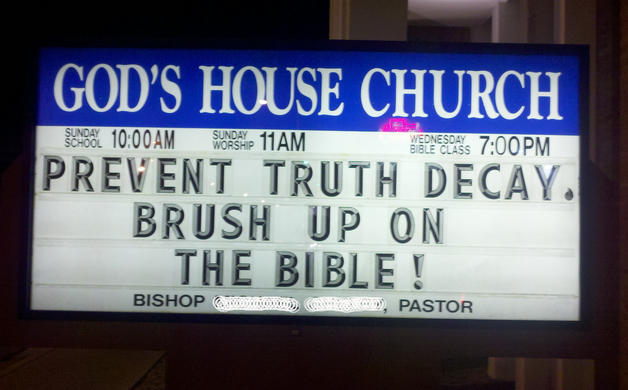 GOD'S HOUSE CHURCH
SUNDAY SCHOOL 10:00AM SUNDAY WORSHIP 11AM WEDNESDAY BIBLE CLASS 7:00PM
PREVENT TRUTH DECAY.
BRUSH UP ON
THE BIBLE!
BISHOP , PASTOR